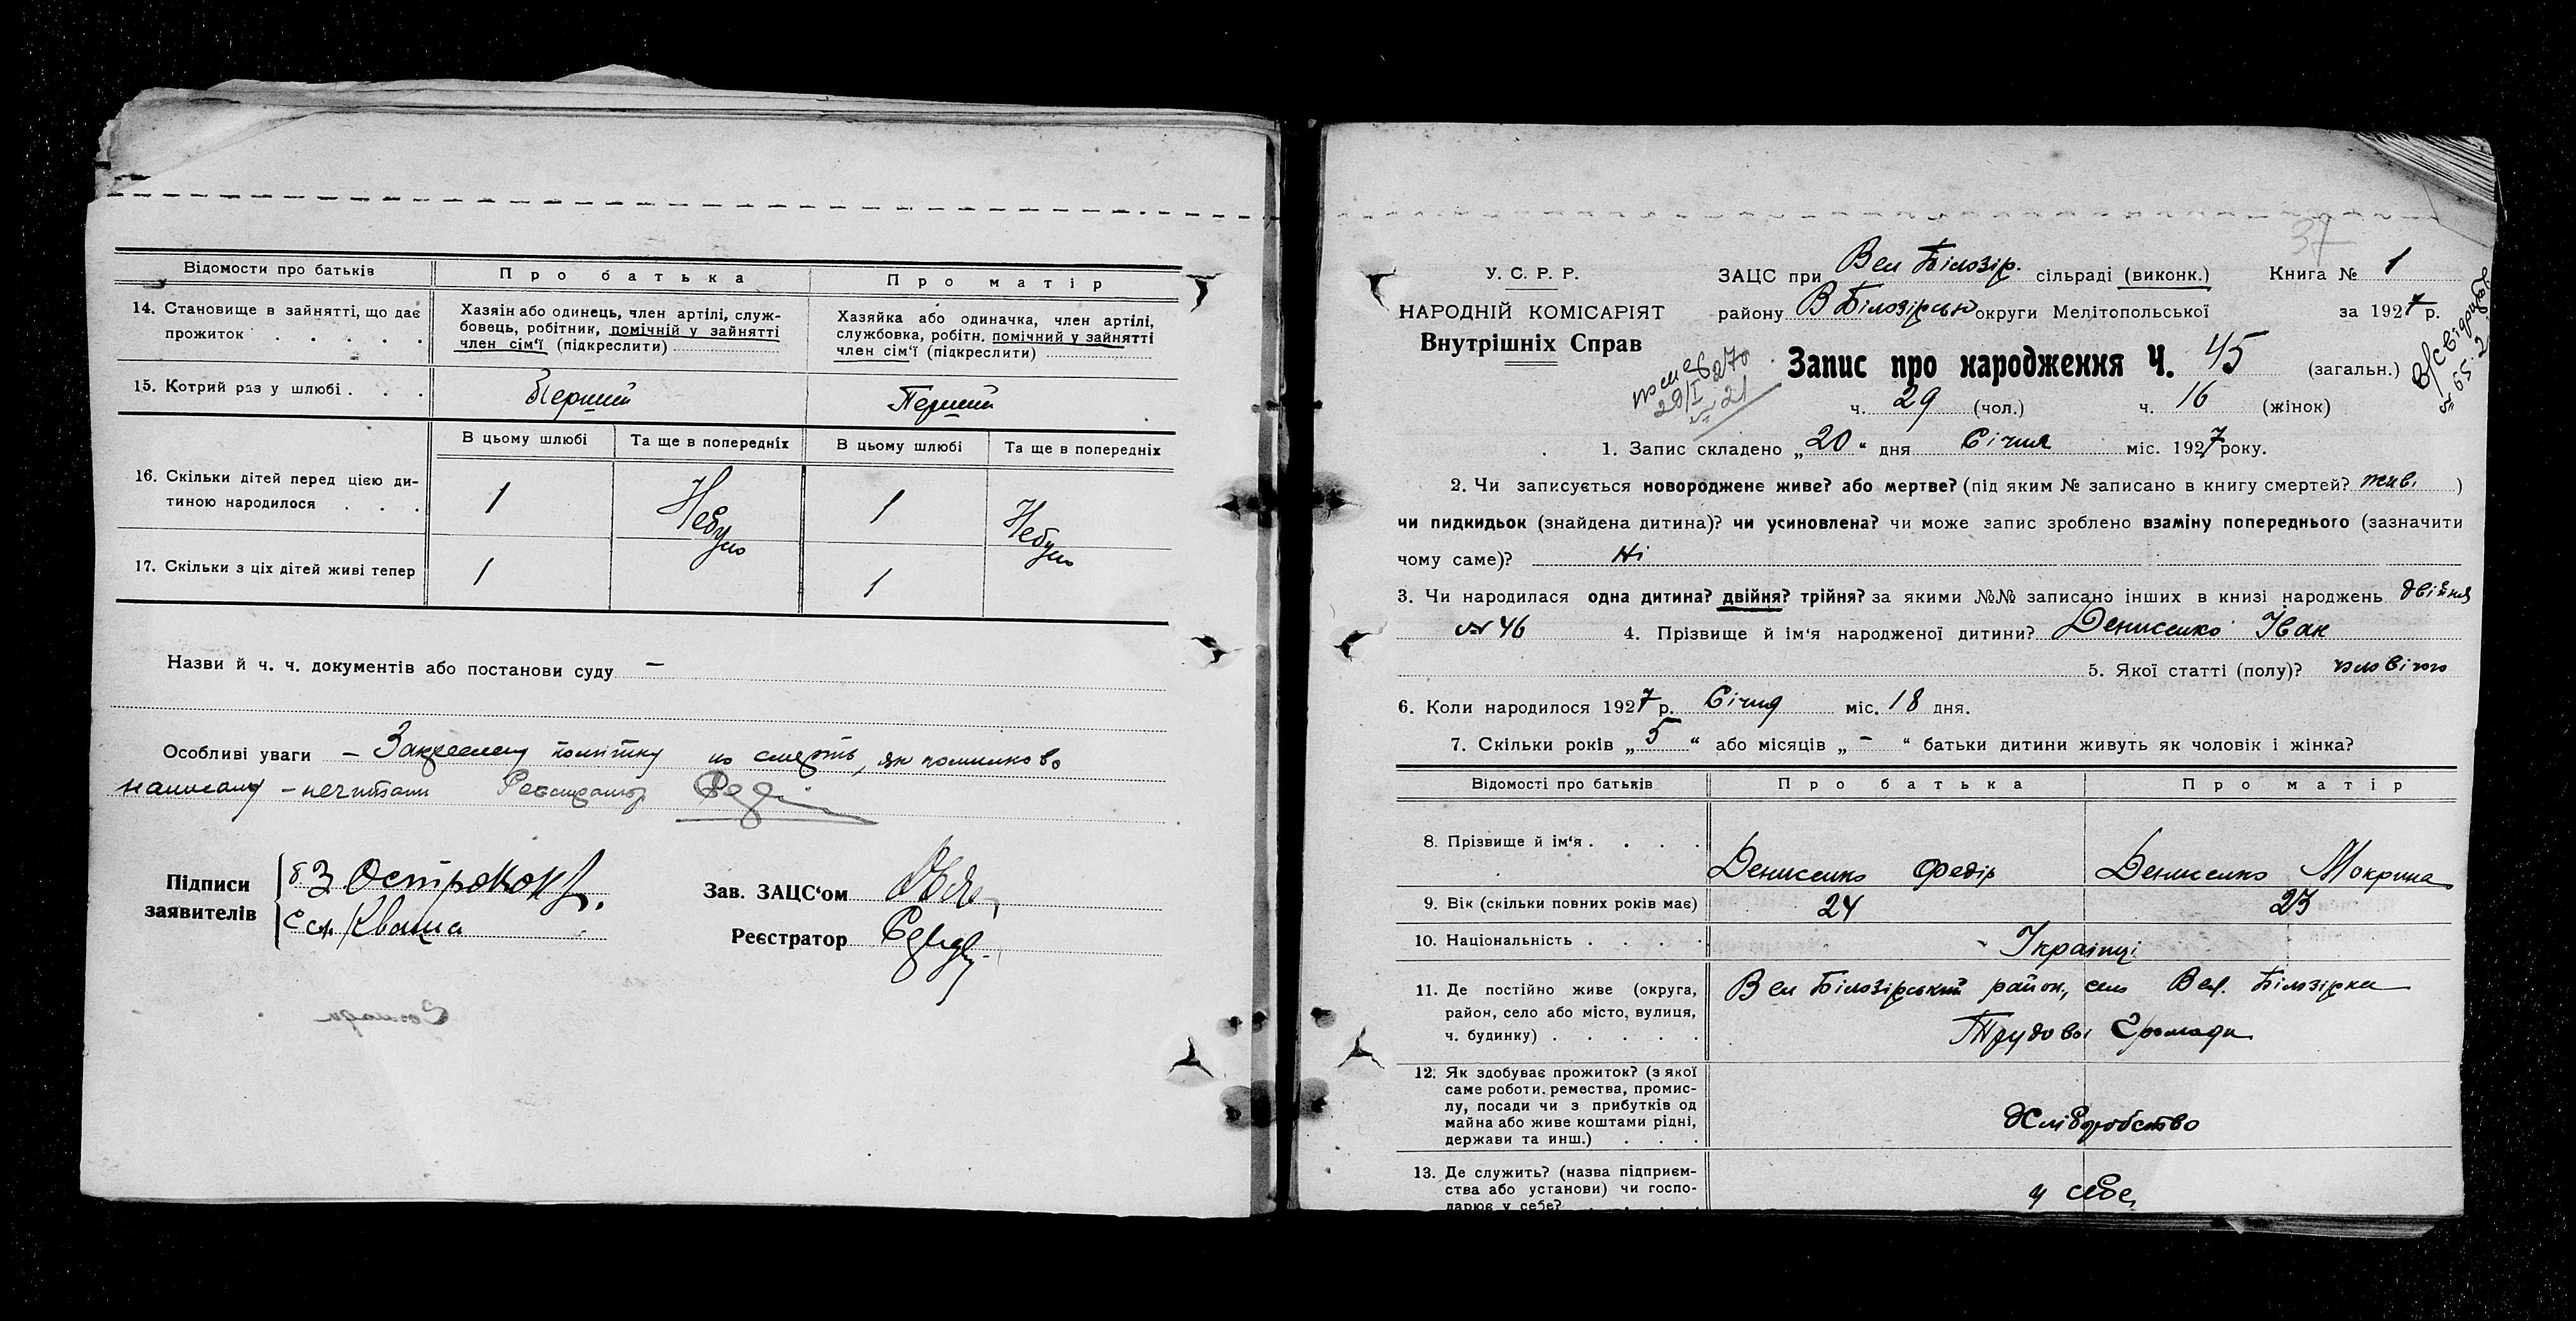 Відомости про батьків
Про батька
Про матір
14. Становище в зайнятті, що дає прожиток . . . . .
Хазяін або одинець, член артілі, служ-
бовець, робітник, помічній у зайнятті
член сім'ї (підкреслити)
Хазяйка або одиначка, член артілі,
службовка, робітн. помічний у зайнятті
член сім'ї (підкреслити)
15. Котрий раз у шлюбі . . .
Перший
Перший
В цьому шлюбі
Та ще в попередніх
В цьому шлюбі
Та ще в попередніх
16. Скільки дітей перед цією ди-
тиною народилося . . .
1
Небуло
1
Небуло
17. Скільки з ціх дітей живі тепер
1
1
Назви й ч. ч. документів або постанови суду –
Особливі уваги – Закреслену помітку по смерть, як помилково
написану – нечитати Реєстратор
Підписи
заявителів
Зав. ЗАЦС'ом
Кваша
Реєстратор
37
У. С. Р. Р.
НАРОДНІЙ КОМІСАРІЯТ
Внутрішніх Справ
ЗАЦС при Вел Білозір. сільраді (виконк.) Книга № 1
району В Білозірськ округи Мелітопольської за 1927 р.
Запис про народження Ч. 45 (загальн.)
ч. 29 (чол.) ч. 16 (жінок)
1. Запис складено „20“ дня Січня міс. 1927 року.
2. Чи записується новороджене живе? або мертве? (під яким № записано в книгу смертей? жив. )
чи пидкидьок (знайдена дитина)? чи усиновлена? чи може запис зроблено взаміну попереднього (зазначити
чому саме)? Ні
3. Чи народилася одна дитина? двійня? трійня? за якими №№ записано інших в книзі народжень двійня
№ 46 4. Прізвище й ім'я народженої дитини? Денисенко Іван
5. Якої статті (полу)? чоловічого
6. Коли народилося 1927 р. Січня міс. 18 дня.
7. Скільки років „5“ або місяців „–“ батьки дитини живуть як чоловік і жінка?
Відомості про батьків
Про батька
Про матір
8. Прізвище й ім'я . . . .
Денисенко Федір
Денисенко Мокрина
9. Вік (скільки повних років має)
24
23
10. Національність . . . .
Українці
11. Де постійно живе (округа,
район, село або місто, вулиця,
ч. будинку) . . . . .
Вел Білозірський район, село Вел. Білозірка
Трудової Громади
12. Як здобуває прожиток? (з якої
саме роботи, ремества, промис-
лу, посади чи з прибутків од
майна або живе коштами рідні,
держави та инш.) . . .
Хліборобство
13. Де служить? (назва підприєм-
ства або установи) чи госпо-
дарює у себе? . . . .
у себе